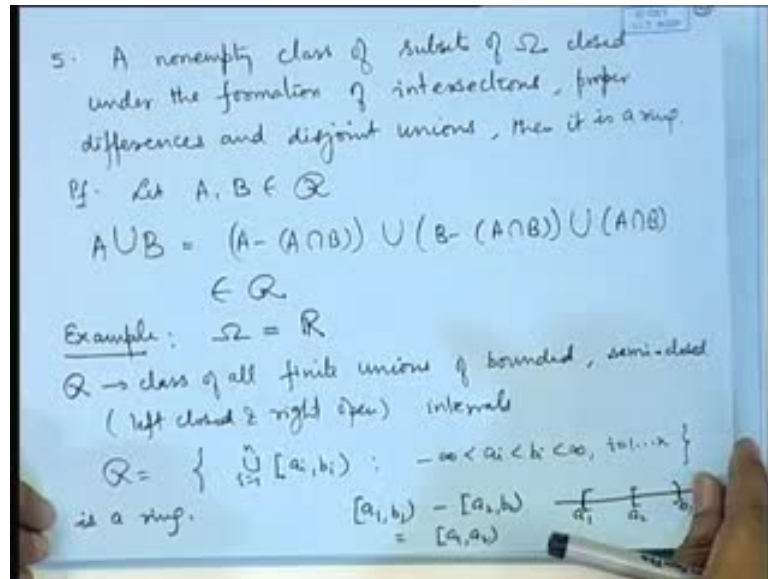 5. A nonempty class of subsets of Ω closed
under the formation of intersections, proper
differences and disjoint unions, then it is a ring.
Pf. Let A, B ∈ R
A ∪ B = (A - (A ∩ B)) ∪ (B - (A ∩ B)) ∪ (A ∩ B)
∈ R
Example: Ω = ℝ
R → class of all finite unions of bounded, semi-closed
(left closed & right open) intervals
R = { ⋃ᵢ₌₁ⁿ [aᵢ, bᵢ) : -∞ < aᵢ < bᵢ < ∞, i=1...n }
is a ring. [a₁, b₁) - [a₂, b₂) a₁ a₂ b₁
= [a₁, a₂)